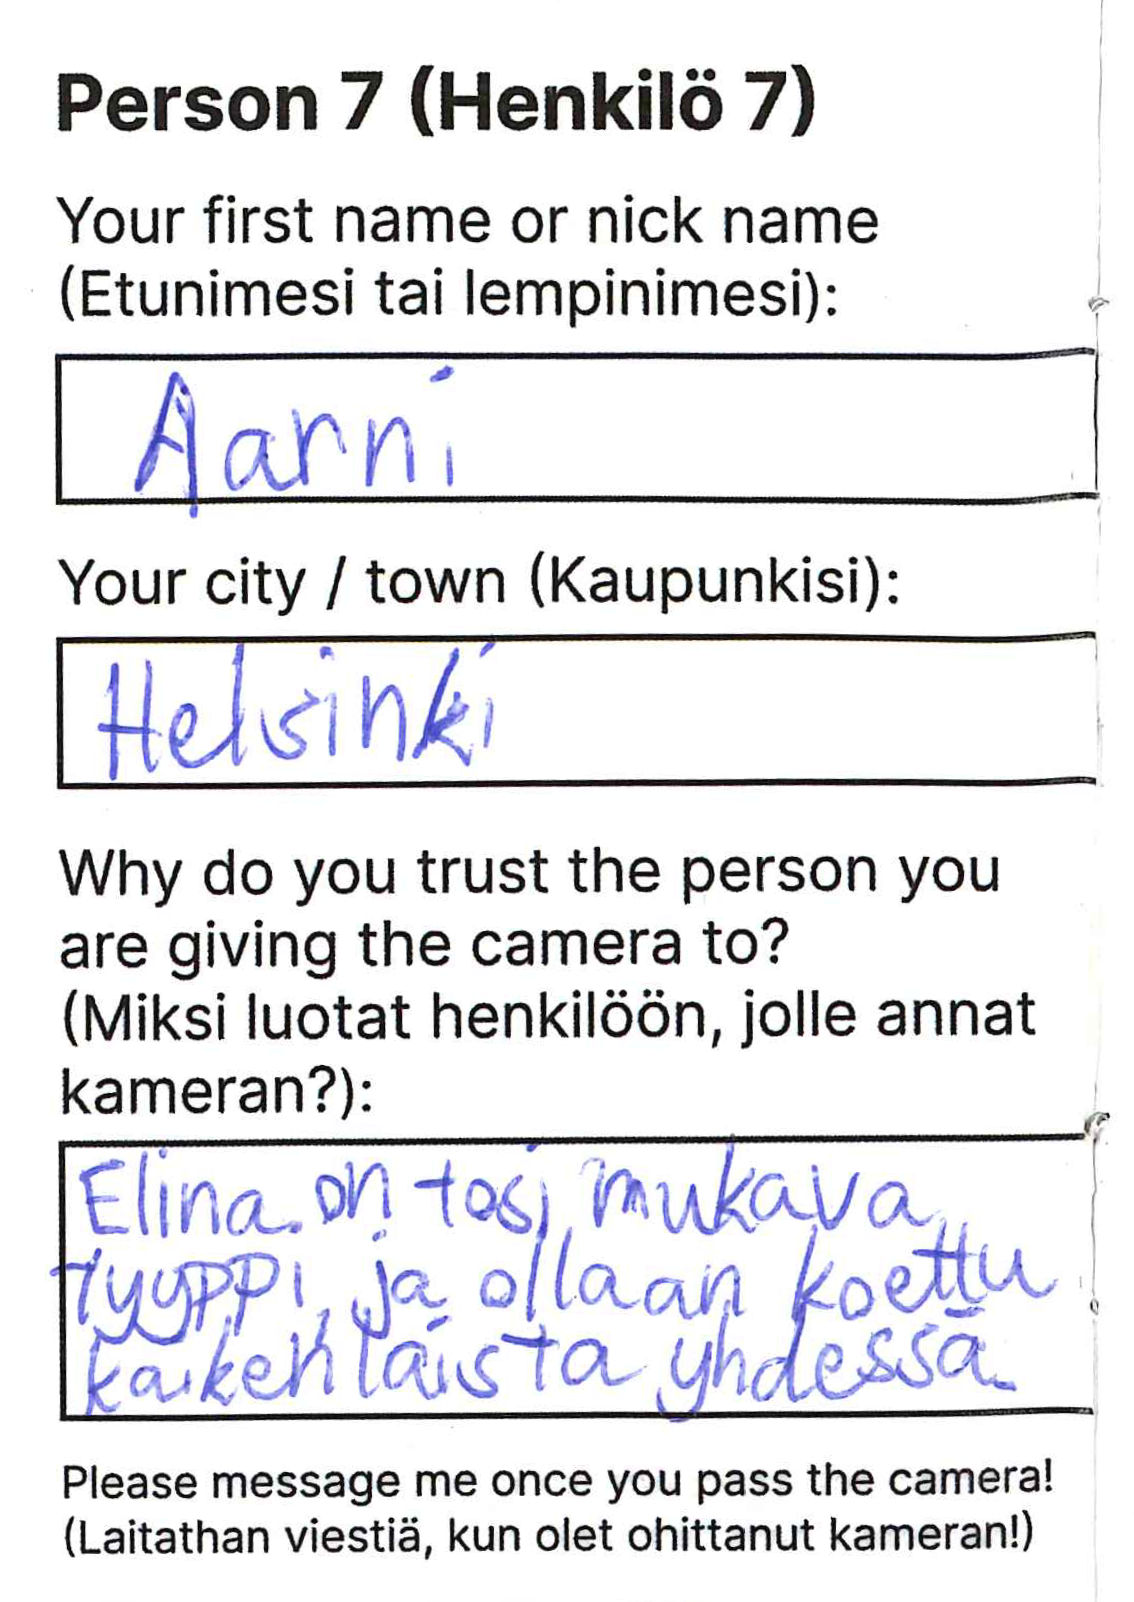 Person 7 (Henkilö 7)
Your first name or nick name
(Etunimesi tai lempinimesi):
Aarni
Your city / town (Kaupunkisi):
Helsinki
Why do you trust the person you
are giving the camera to?
(Miksi luotat henkilöön, jolle annat
kameran?):
Elina on tosi mukava
tyyppi, ja ollaan koettu
kaikenlaista yhdessä.
Please message me once you pass the camera!
(Laitathan viestiä, kun olet ohittanut kameran!)